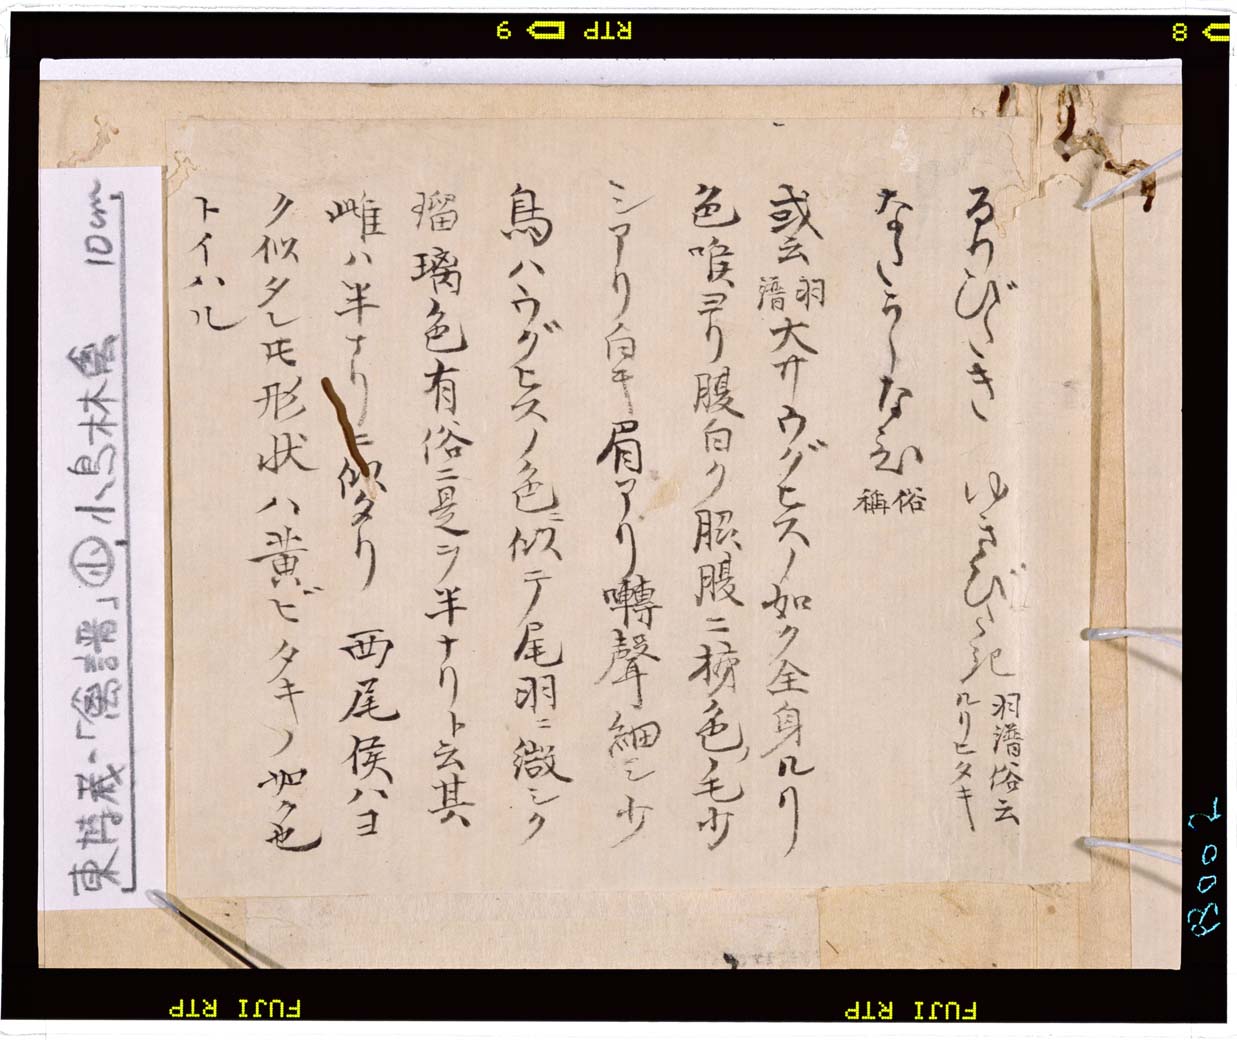 るりびたき ゆきびたき 羽譜俗云ルリヒタキ
俗稱
或云羽譜大サウグヒスノ如ク全身ルリ
色喉ヨリ腹白ク脇腹ニ樺色ノ毛少
シアリ白キ眉アリ囀聲細シ少
鳥ハウグヒスノ色ニ似テ尾羽ニ微シク
瑠璃色有俗ニ是ヲ半ナリト云其
雌ハ半ナリニ似タリ 西尾侯ハヨ
ク似タレ𪜈形状ハ黄ビタキノ如ク也
トイハル
東博蔵・「禽譜」 小鳥林禽 10cm
RTP 9
8
FUJI RTP
FUJI RTP
B002